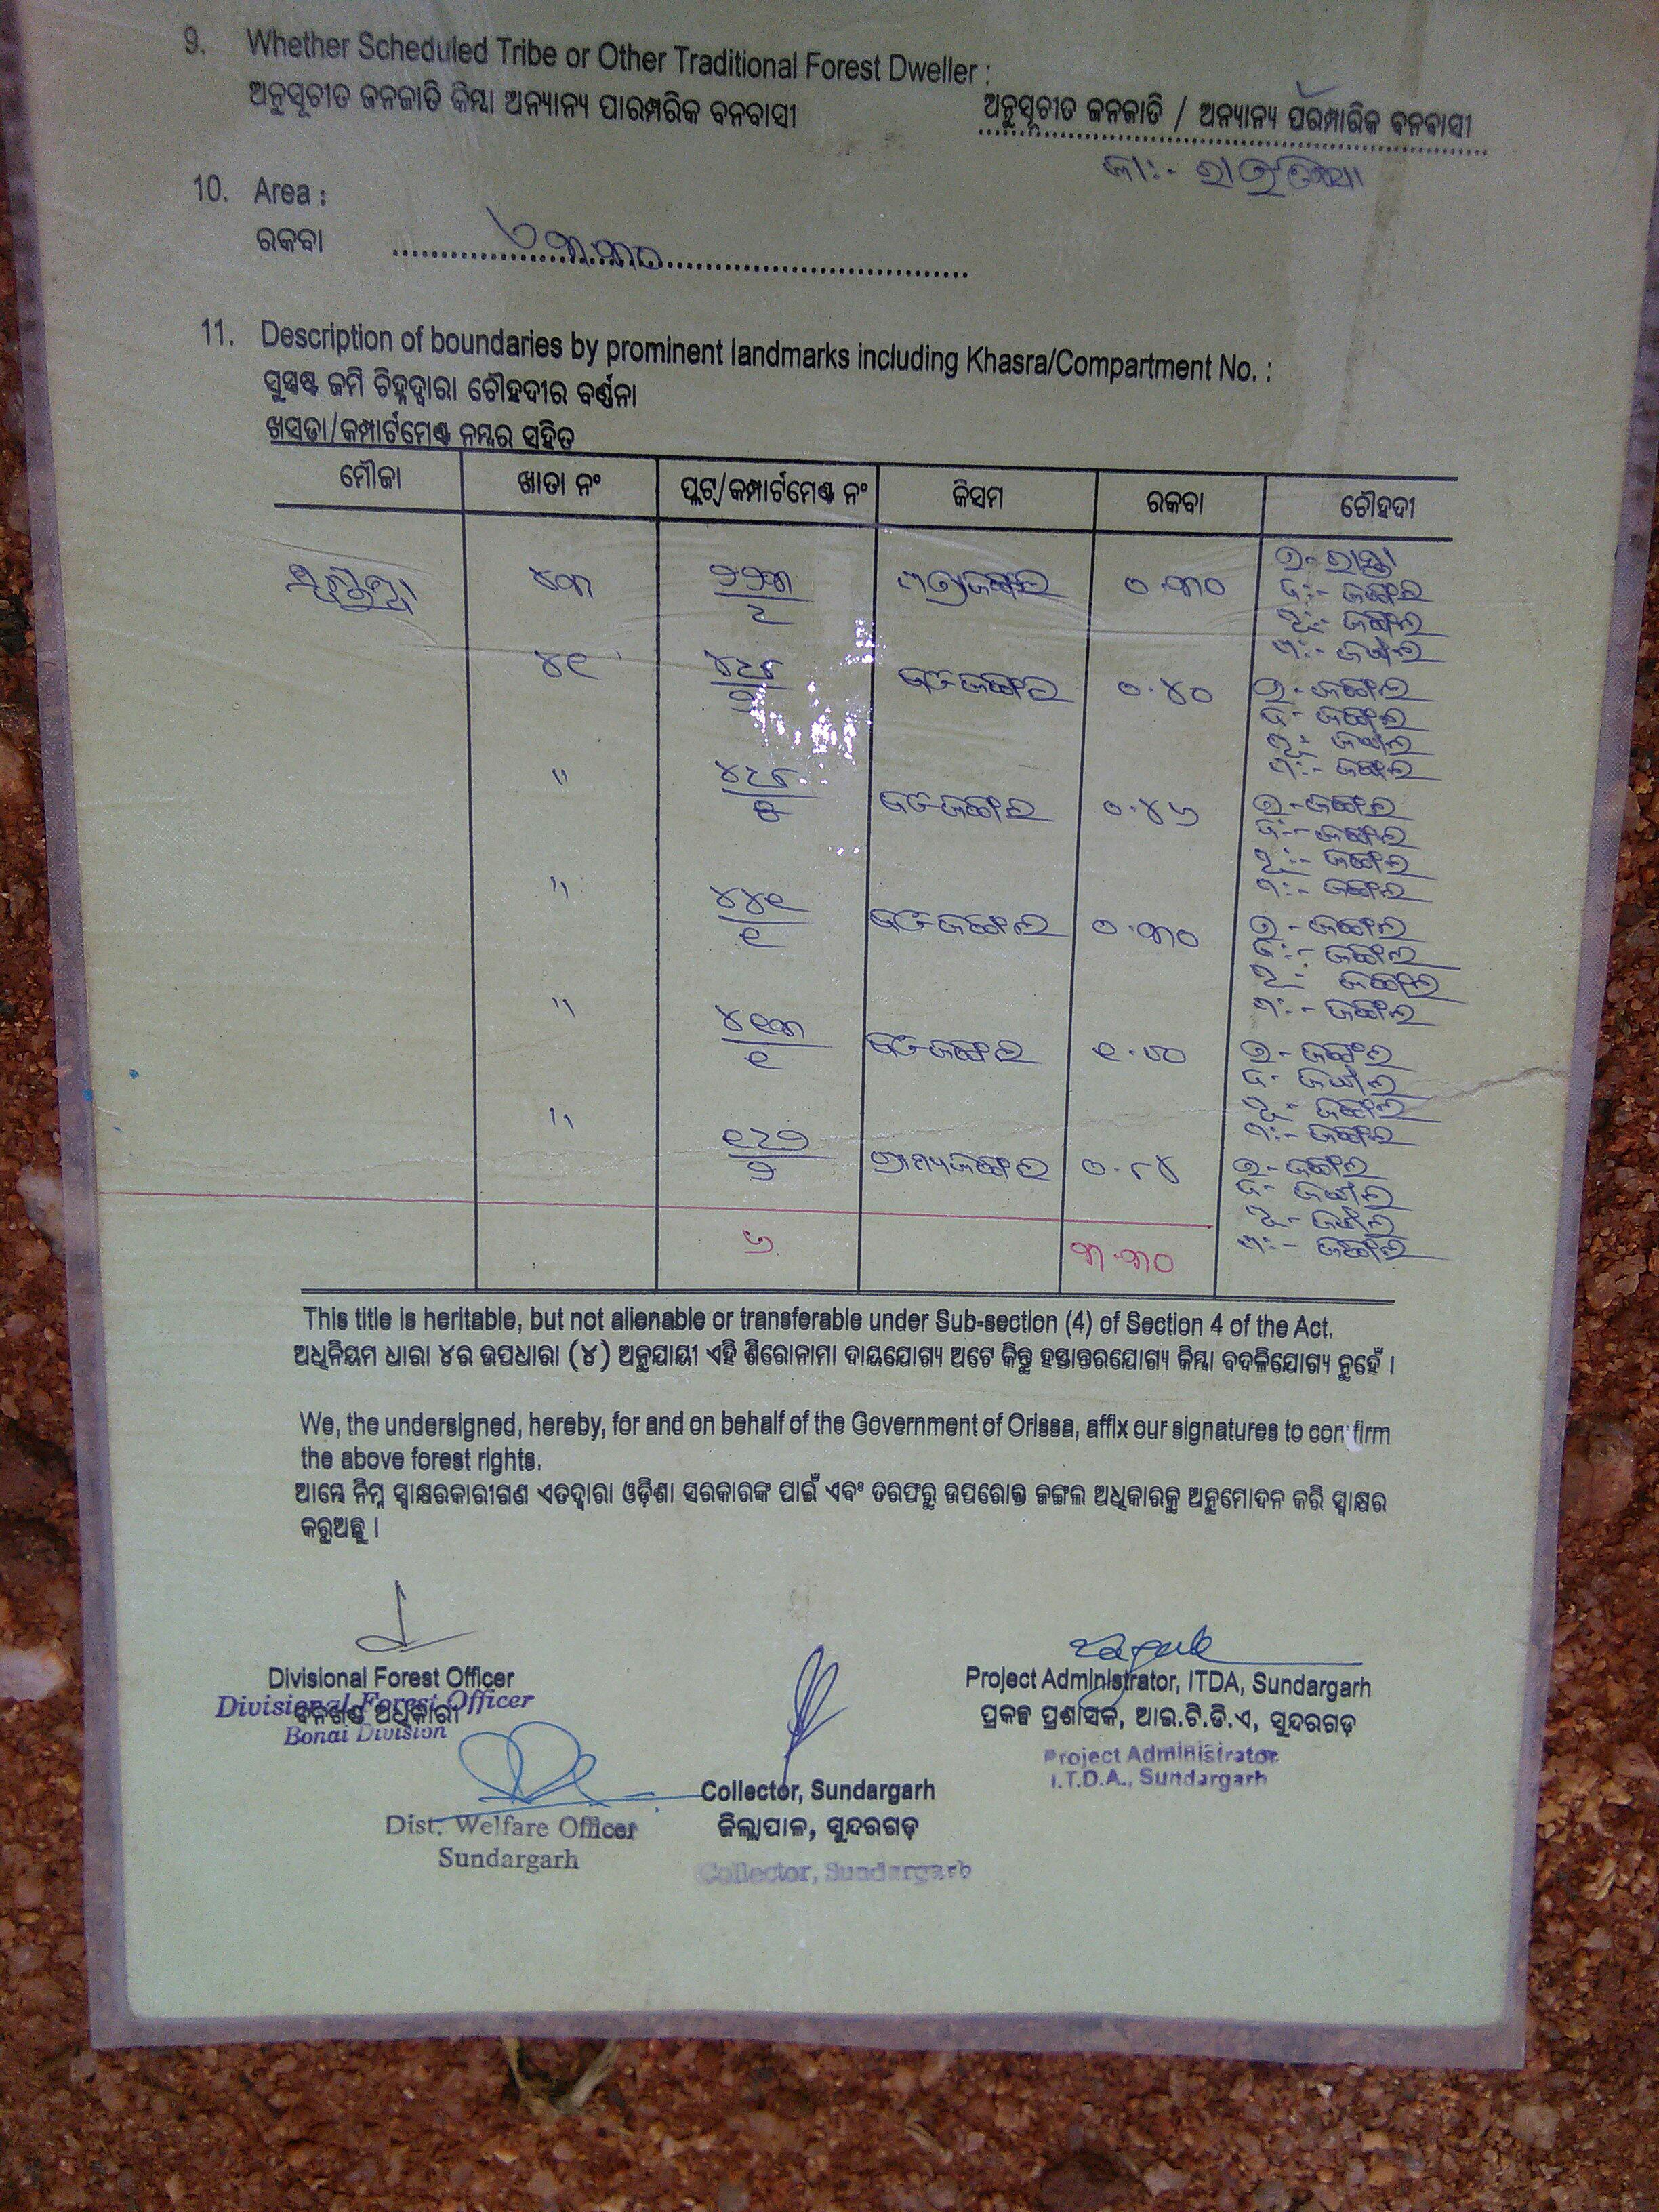 9. Whether Scheduled Tribe or Other Traditional Forest Dweller :
ଅନୁସୂଚୀତ ଜନଜାତି କିମ୍ବା ଅନ୍ୟାନ୍ୟ ପାରମ୍ପରିକ ବନବାସୀ
ଅନୁସୂଚୀତ ଜନଜାତି / ଅନ୍ୟାନ୍ୟ ପରମ୍ପାରିକ ବନବାସୀ
ଜା:-
10. Area :
ରକବା
୩.୩୦
11. Description of boundaries by prominent landmarks including Khasra/Compartment No. :
ସୁସ୍ପଷ୍ଟ ଜମି ଚିହ୍ନଦ୍ୱାରା ଚୌହଦୀର ବର୍ଣ୍ଣନା
ଖସଡା/କମ୍ପାର୍ଟମେଣ୍ଟ ନମ୍ବର ସହିତ
ମୌଜା ଖାତା ନଂ ପ୍ଲଟ୍/କମ୍ପାର୍ଟମେଣ୍ଟ ନଂ କିସମ ରକବା ଚୌହଦୀ
୪୩ ୨୨୩/୪ ପତ୍ରଜଙ୍ଗଲ ୦.୩୦ ଉ-ରାସ୍ତା
ଦ:- ଜଙ୍ଗଲ
ପୂ:- ଜଙ୍ଗଲ
ପ:- ଜଙ୍ଗଲ
୪୧ ୦.୪୦ ଉ-ଜଙ୍ଗଲ
ଦ- ଜଙ୍ଗଲ
ପୂ:- ଜଙ୍ଗଲ
ପ:- ଜଙ୍ଗଲ
" ୦.୪୬ ଉ-ଜଙ୍ଗଲ
ଦ:- ଜଙ୍ଗଲ
ପୂ:- ଜଙ୍ଗଲ
ପ:- ଜଙ୍ଗଲ
" ୪୪୧/୧ ୦.୩୦ ଉ-ଜଙ୍ଗଲ
ଦ:- ଜଙ୍ଗଲ
ପୂ- ଜଙ୍ଗଲ
ପ:- ଜଙ୍ଗଲ
" ୪୧୩/୧ ୧.୦୦ ଉ- ଜଙ୍ଗଲ
ଦ- ଜଙ୍ଗଲ
ପୂ- ଜଙ୍ଗଲ
ପ:- ଜଙ୍ଗଲ
" ଗ୍ରାମ୍ୟଜଙ୍ଗଲ ୦.୮୪ ଉ- ଜଙ୍ଗଲ
ଦ- ଜଙ୍ଗଲ
ପୂ- ଜଙ୍ଗଲ
ପ:- ଜଙ୍ଗଲ
୬ ୩.୩୦
This title is heritable, but not alienable or transferable under Sub-section (4) of Section 4 of the Act.
ଅଧିନିୟମ ଧାରା ୪ର ଉପଧାରା (୪) ଅନୁଯାୟୀ ଏହି ଶିରୋନାମା ଦାୟଯୋଗ୍ୟ ଅଟେ କିନ୍ତୁ ହସ୍ତାନ୍ତରଯୋଗ୍ୟ କିମ୍ବା ବଦଳିଯୋଗ୍ୟ ନୁହେଁ ।
We, the undersigned, hereby, for and on behalf of the Government of Orissa, affix our signatures to confirm
the above forest rights.
ଆମ୍ଭେ ନିମ୍ନ ସ୍ୱାକ୍ଷରକାରୀଗଣ ଏତଦ୍ୱାରା ଓଡ଼ିଶା ସରକାରଙ୍କ ପାଇଁ ଏବଂ ତରଫରୁ ଉପରୋକ୍ତ ଜଙ୍ଗଲ ଅଧିକାରକୁ ଅନୁମୋଦନ କରି ସ୍ୱାକ୍ଷର
କରୁଅଛୁ ।
Divisional Forest Officer
Divisional Forest Officer
ବନଖଣ୍ଡ ଅଧିକାରୀ
Bonai Division
Project Administrator, ITDA, Sundargarh
ପ୍ରକଳ୍ପ ପ୍ରଶାସକ, ଆଇ.ଟି.ଡି.ଏ, ସୁନ୍ଦରଗଡ଼
Project Administrator
I.T.D.A., Sundargarh
Collector, Sundargarh
ଜିଲ୍ଲାପାଳ, ସୁନ୍ଦରଗଡ଼
Collector, Sundargarh
Dist. Welfare Officer
Sundargarh